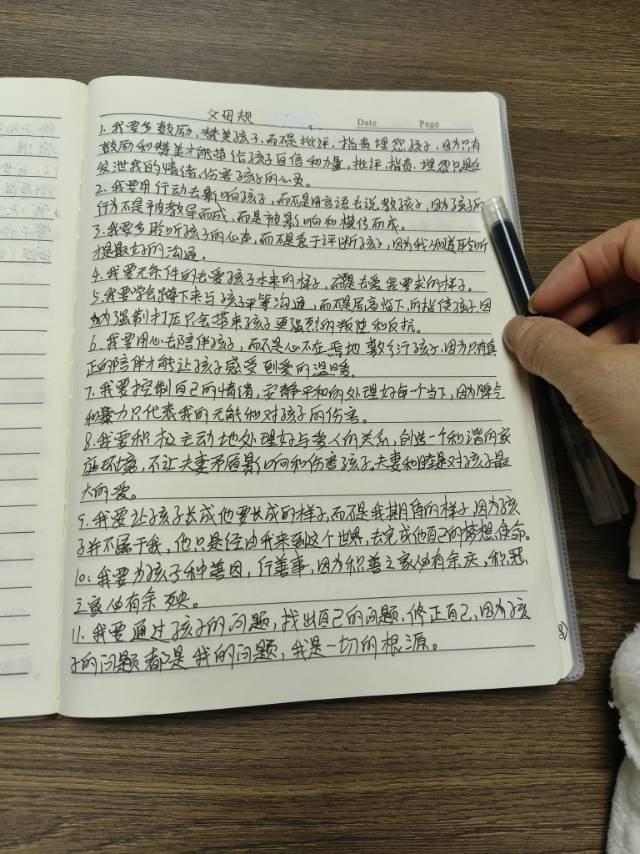 父母规
Date Page
1. 我要多鼓励,赞美孩子,而不是批评,指责埋怨孩子,因为只有
鼓励和赞美才能带给孩子自信和力量,批评、指责、埋怨只是在
发泄我的情绪,伤害孩子的心灵。
2. 我要用行动去影响孩子,而不是用言语去说教孩子,因为孩子的
行为不是被教导而成,而是被影响和模仿而成。
3. 我要多聆听孩子的心声,而不是急于评断孩子,因为我知道聆听
才是最好的沟通。
4. 我要无条件的去爱孩子本来的样子,而不是去爱我要求的样子。
5. 我要学会蹲下来与孩子平等沟通,而不是居高临下的指使孩子,因
为强制打压只会带来孩子更强烈的叛逆和反抗。
6. 我要用心去陪伴孩子,而不是心不在焉地敷衍孩子,因为只有真
正的陪伴才能让孩子感受到爱的温暖。
7. 我要控制自己的情绪,安静平和的处理好每一个当下,因为脾气
和暴力只代表我的无能和对孩子的伤害。
8. 我要积极主动地处理好与家人的关系,创造一个和谐的家
庭环境,不让夫妻矛盾影响和伤害孩子,夫妻和睦是对孩子最
大的爱。
9. 我要让孩子长成他要长成的样子,而不是我期待的样子,因为孩
子并不属于我,他只是经由我来到这个世界,去完成他自己的梦想、使命。
10. 我要为孩子种善因,行善事,因为积善之家必有余庆,积恶
之家必有余殃。
11. 我要通过孩子的问题,找出自己的问题,修正自己,因为孩
子的问题都是我的问题,我是一切的根源。